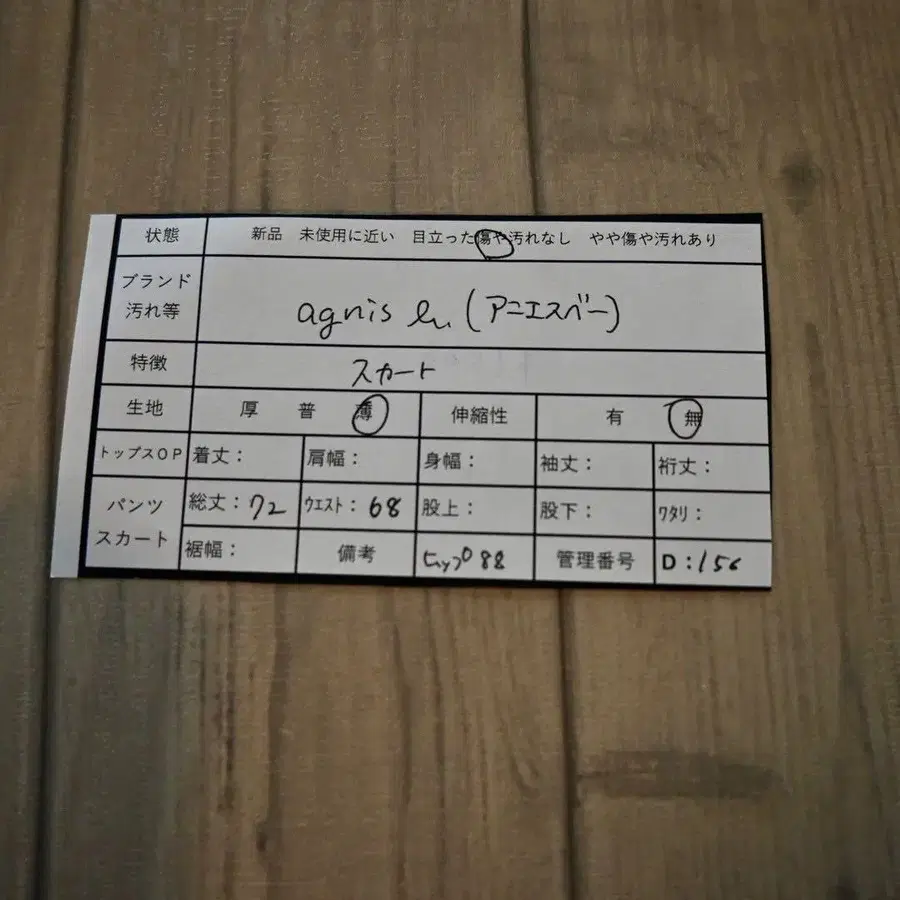 状態 新品 未使用に近い 目立った傷や汚れなし やや傷や汚れあり
ブランド
汚れ等
agnis b. (アニエスベー)
特徴 スカート
生地 厚 普 薄 伸縮性 有 無
トップスOP 着丈: 肩幅: 身幅: 袖丈: 裄丈:
パンツ
スカート
総丈:72 ウエスト:68 股上: 股下: ワタリ:
裾幅: 備考 ヒップ88 管理番号 D:156